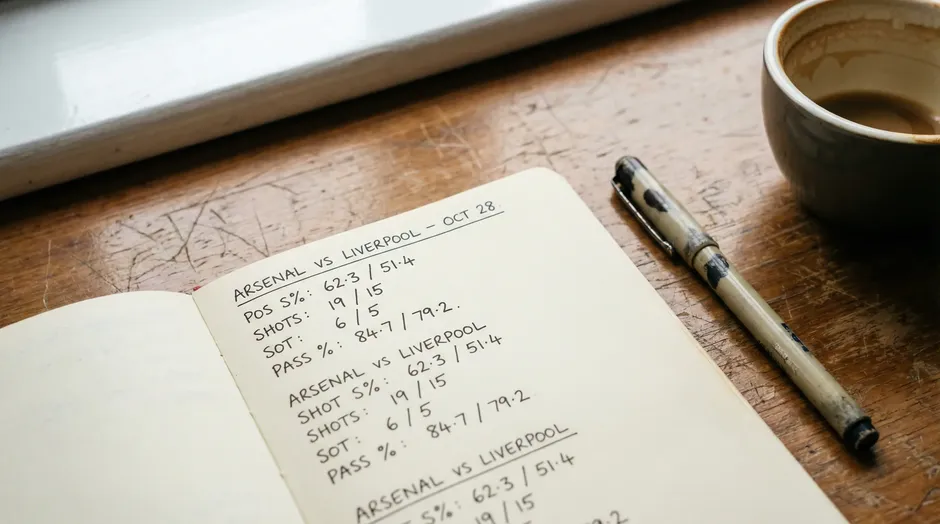 ARSENAL VS LIVERPOOL – OCT 28.
POS S%: 62.3 / 51.4
SHOTS: 19 / 15
SOT: 6 / 5
PASS %: 84.7 / 79.2.
ARSENAL VS LIVERPOOL
SHOT S%: 62.3 / 51.4
SHOTS: 19 / 15
SOT: 6 / 5
PASS %: 84.7 / 79.2
ARSENAL VS LIVERPOOL
S%: 62.3 / 51.4
19 / 15
79.2